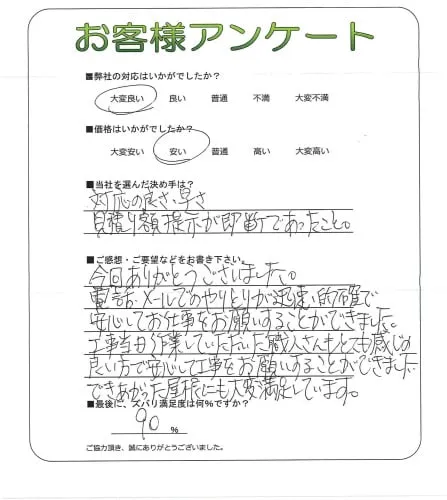 お客様アンケート
■弊社の対応はいかがでしたか？
大変良い 良い 普通 不満 大変不満
■価格はいかがでしたか？
大変安い 安い 普通 高い 大変高い
■当社を選んだ決め手は？
対応の良さ、早さ
見積り額提示が即断であったこと。
■ご感想・ご要望などをお書き下さい。
今回ありがとうございました。
電話、メールでのやりとりが迅速、的確で
安心してお仕事をお願いすることができました。
工事当日作業していただいた職人さんもとても感じの
良い方で安心して工事をお願いすることができました
できあがった屋根にも大変満足しています。
■最後に、ズバリ満足度は何％ですか？
90 ％
ご協力頂き、誠にありがとうございました。